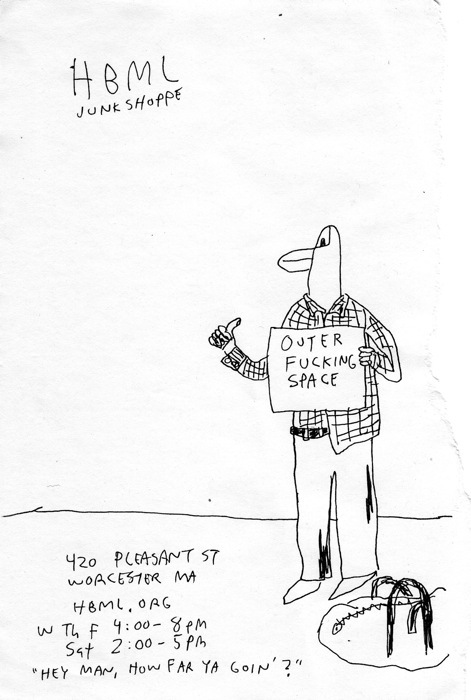 HBML
JUNKSHOPPE
OUTER
FUCKING
SPACE
420 PLEASANT ST
WORCESTER MA
HBML.ORG
W Th F 4:00-8pm
Sat 2:00-5pm
"HEY MAN, HOW FAR YA GOIN'?"